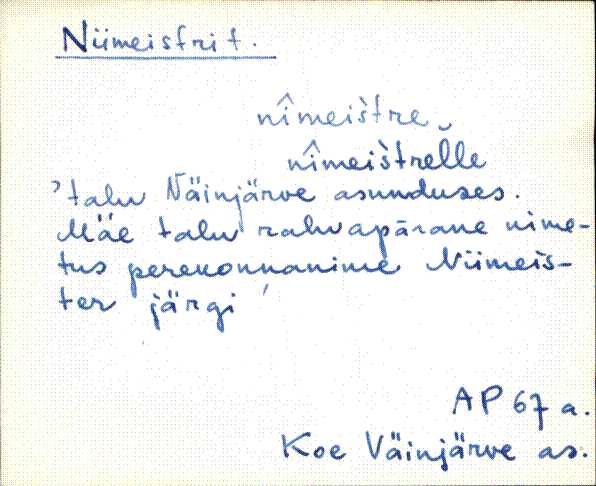 Niimeistri t.
nîmeìštre ᴗ
nîmeìštrelle
'talu Näinjärve asunduses.
Mäe talu rahvapärane nime-
tus perekonnanime Niimeis-
ter järgi'
AP 67 a.
Koe Väinjärve as.